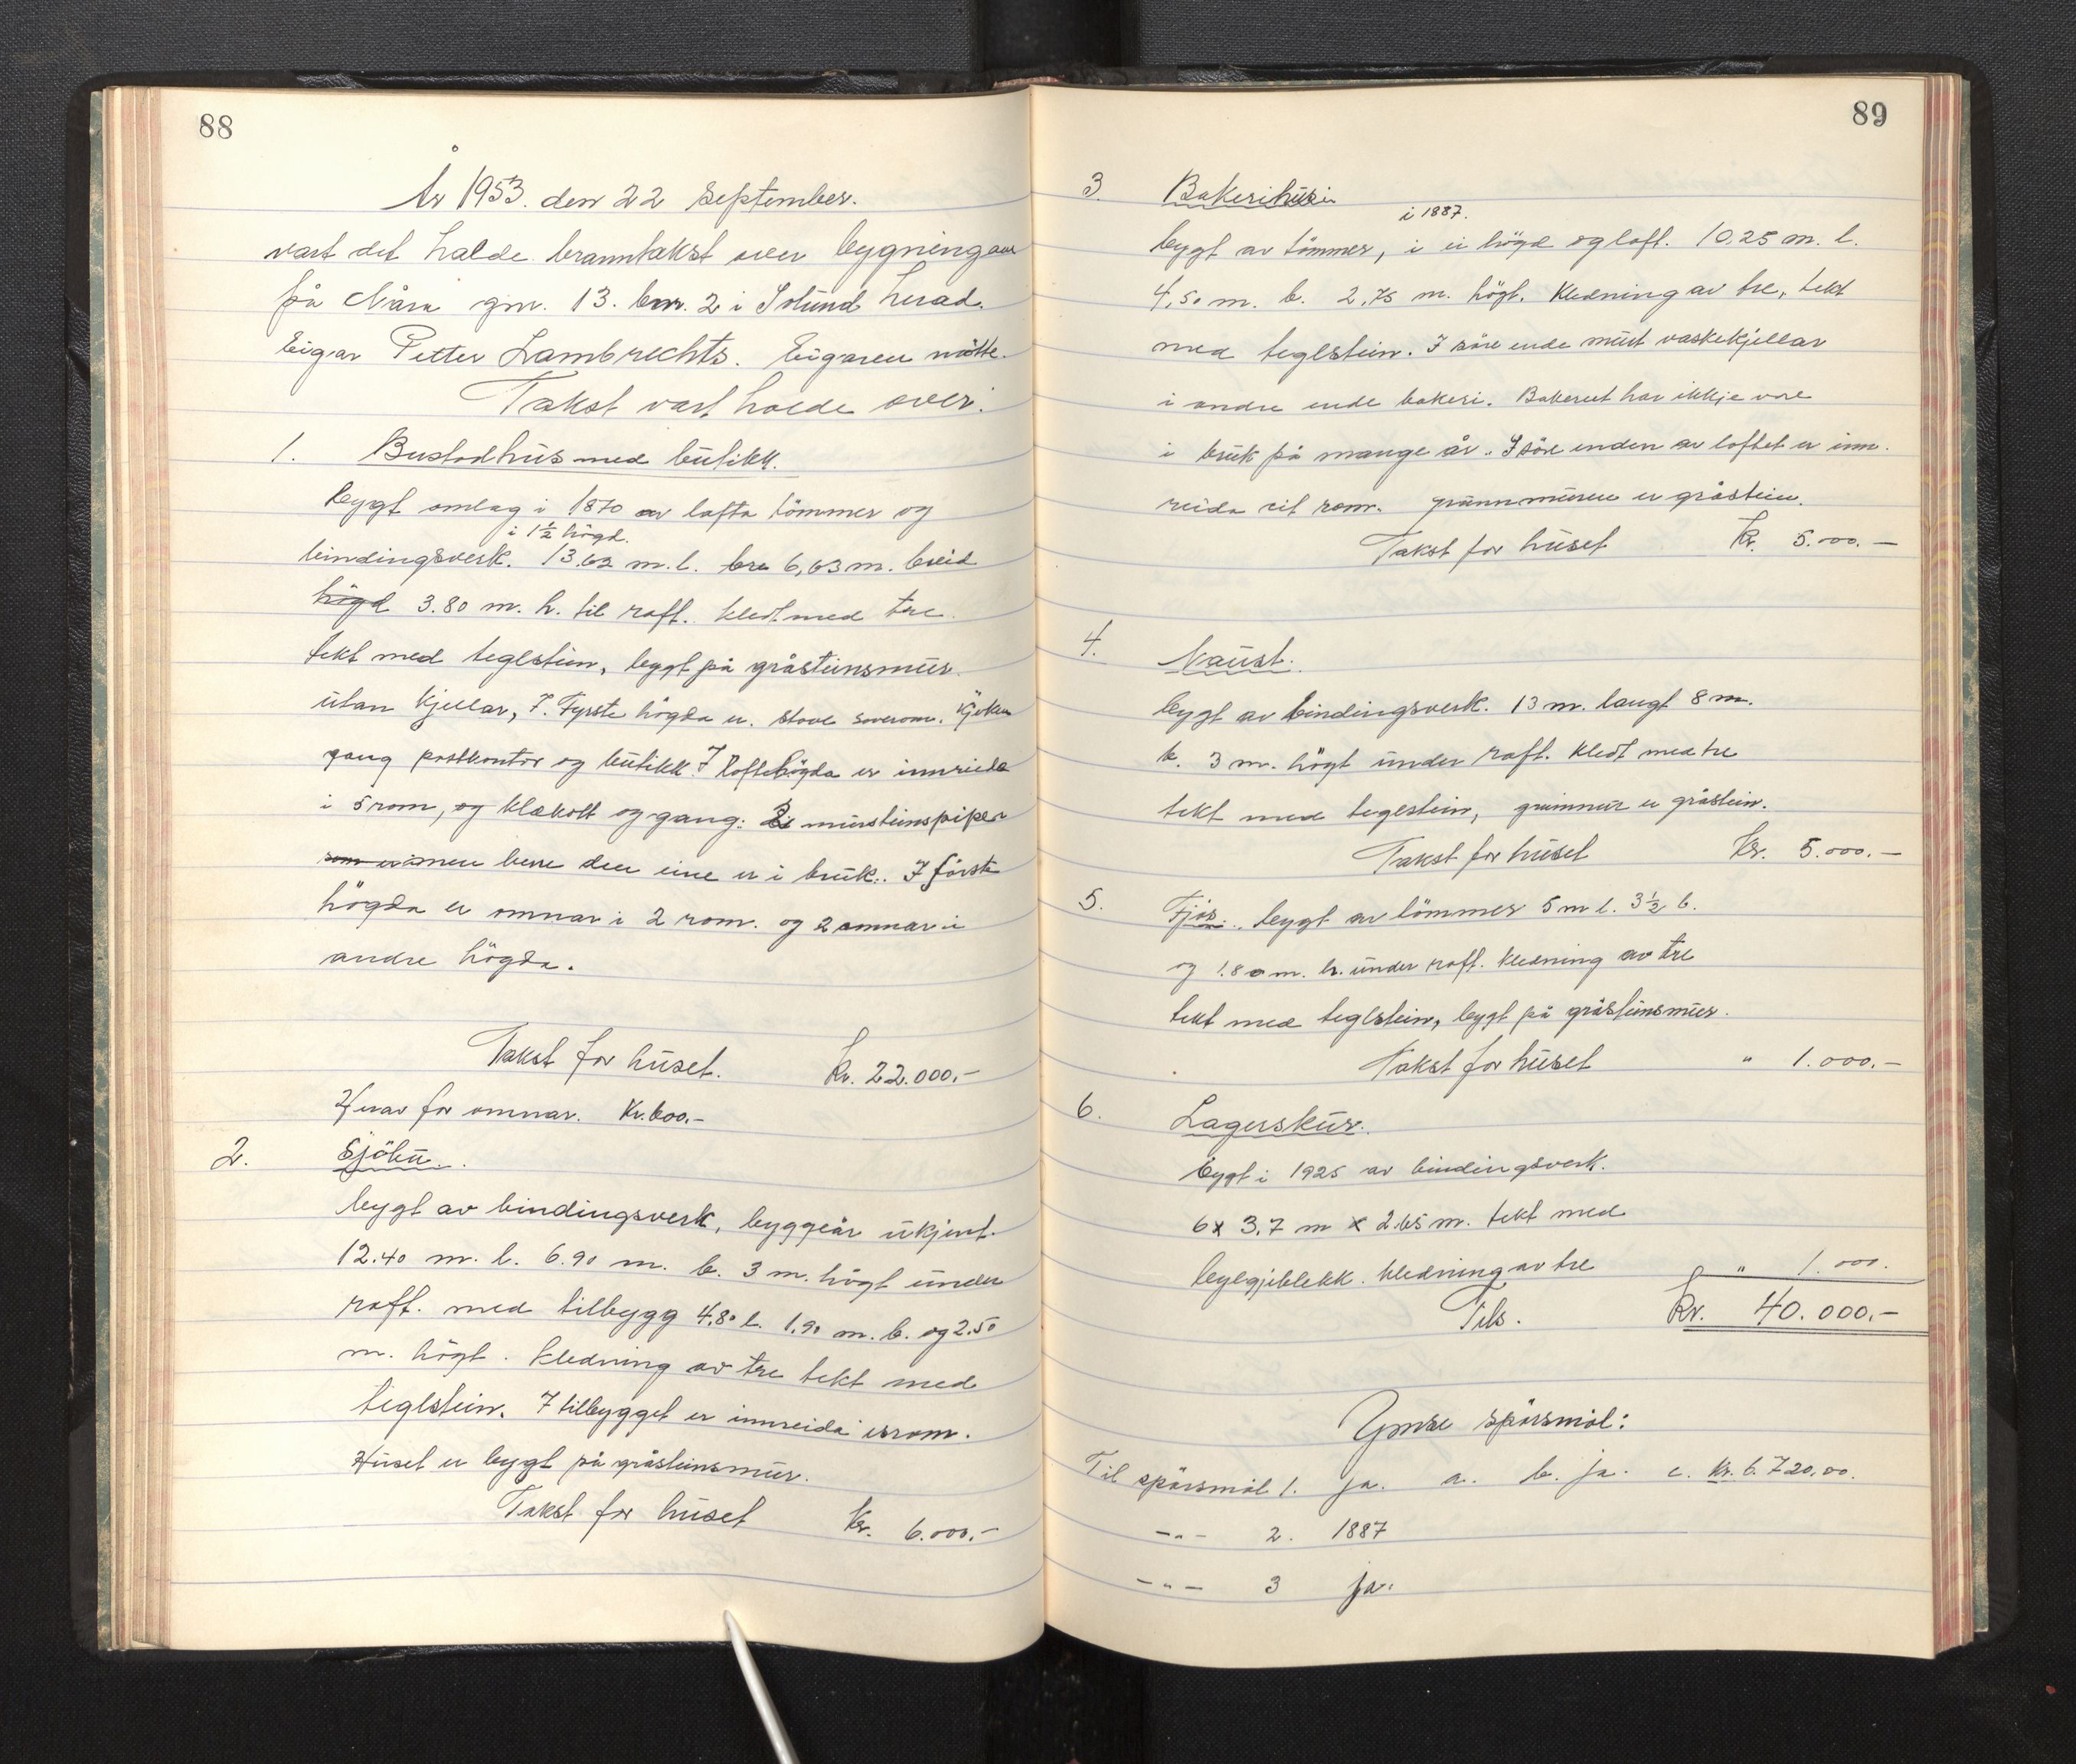 88
År 1953. den 22 September.
vart det halde branntakst over bygningane
på Nåra gnr. 13. bnr. 2 i Solund herad.
Eigar Petter Lambrechts. Eigaren møtte.
Takst vart halde over:
1. Bustadhus med butikk.
bygt omlag i 1870 av lafta tömmer og
i 1½ högd.
bindingsverk. 13,62 m. l. bre 6,63 m. breid
högd 3.80 m. h. til raft. kledt med tre
tekt med teglstein, bygt på gråsteinsmur
utan kjellar, I. Fyrste högda er stove soverom. kjöken
gang postkontor og butikk. I loftshögda er innreida
i 5 rom, og klæskott og gang. 2 mursteinspiper
men berre den eine er i bruk. I förste
högda er omnar i 2 rom. og 2 omnar i
andre högda.
Takst for huset. Kr. 22.000.-
Herav for omnar. Kr. 600.-
2. Sjöbu.
bygt av bindingsverk, byggeår ukjent.
12.40 m. l. 6.90 m. b. 3 m. högt under
raft. med tilbygg 4,80 l. 1.90 m. b. og 2.50
m. högt. kledning av tre tekt med
teglstein. I tilbygget er innreida isrom.
Huset er bygt på gråsteinsmur.
Takst for huset Kr. 6.000.-
89
3. Bakerihus
i 1887.
bygt av tömmer, i ei högd og loft. 10,25 m. l.
4,50 m. b. 2,75 m. högt. Kledning av tre, tekt
med teglstein. I søre ende murt vaskekjellar
i andre ende bakeri. Bakeriet har ikkje vore
i bruk på mange år. I söre enden av loftet er inn-
reida eit rom. grunnmuren er gråstein.
Takst for huset Kr. 5.000.-
4. Naust.
bygt av bindingsverk. 13 m. langt 8 m.
b. 3 m. högt under raft. kledt med tre
tekt med teglstein, grunnmur er gråstein.
Takst for huset Kr. 5.000.-
5. Fjös. bygt av tömmer 5 m l. 3½ b.
og 1.80 m. h. under raft. kledning av tre
tekt med teglstein, bygt på gråsteinsmur.
Takst for huset " 1.000.-
6. Lagerskur.
bygt i 1925 av bindingsverk.
6 x 3.7 m x 2.65 m. tekt med
bylgjeblekk. kledning av tre " 1.000.
Tils. Kr. 40.000.-
Ymse spörsmål:
Til spörsmål 1. ja. a. b. ja. c. Kr. 6.720,00.
-"- 2. 1887
-"- 3 ja.